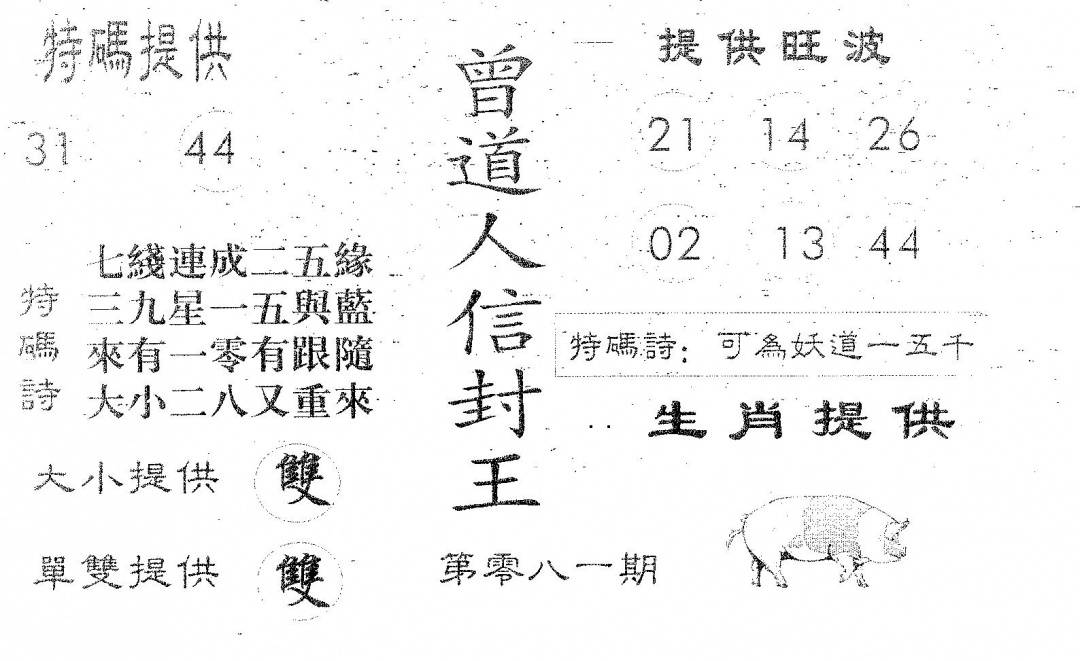 特碼提供
31 44
特碼詩
七綫連成二五緣
三九星一五與藍
來有一零有跟隨
大小二八又重來
大小提供 雙
單雙提供 雙
曾道人信封王
第零八一期
提供旺波
21 14 26
02 13 44
特碼詩：可為妖道一五千
生肖提供